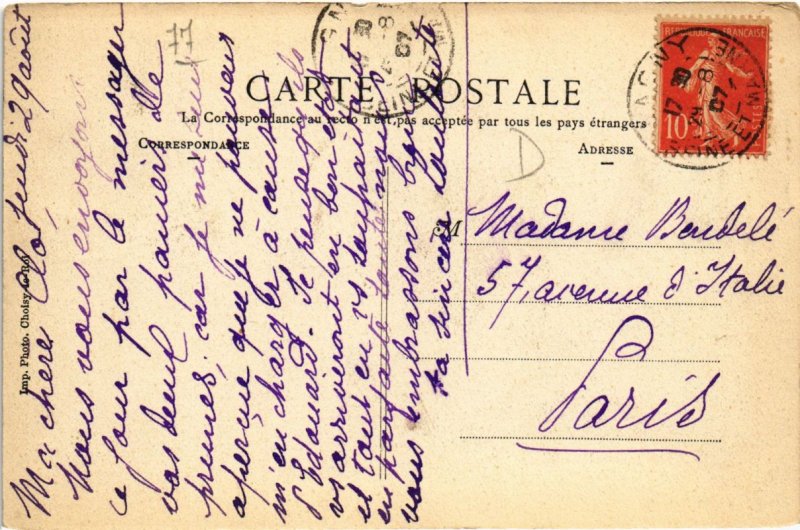 CARTE POSTALE
La Correspondance au recto n'est pas acceptée par tous les pays étrangers
CORRESPONDANCE
ADRESSE
RÉPUBLIQUE FRANÇAISE
10
77
D
M
Madame Bendelé
57, avenue d'Italie
Paris
Jeudi 29 août
Ma chère Clo,
Nous vous envoyons
ce jour par le messager
vos deux paniers de
prunes, car je me suis
aperçue que je ne pouvais
m'en charger à cause
d'Edouard. Je pense qu'ils
vs arriveront en bon état
et tout en vs souhaitant
en parfaite santé nous
vous embrassons bien
ta sincère
Imp. Photo. Choisy-le-Roy